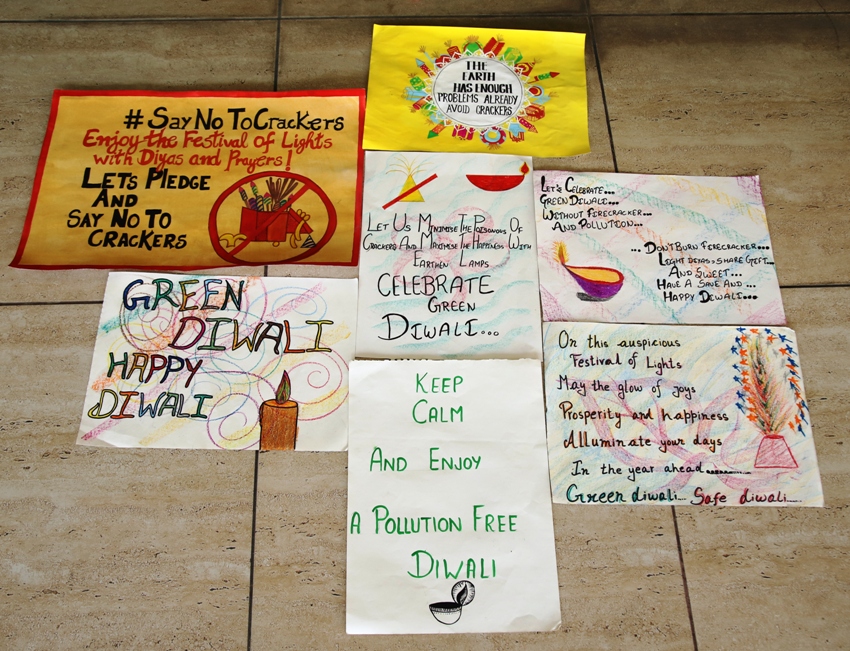 # SAY NO TO CRACKERS
Enjoy the Festival of Lights
with Diyas and Prayers!
LETS PLEDGE
AND
SAY NO TO
CRACKERS
THE
EARTH
HAS ENOUGH
PROBLEMS ALREADY
AVOID CRACKERS
LET US MINIMISE THE POISONOUS OF
CRACKERS AND MAXIMISE THE HAPPINESS WITH
EARTHEN LAMPS
CELEBRATE
GREEN
DIWALI...
LET'S CELEBRATE...
GREEN DIWALI...
WITHOUT FIRECRACKER...
AND POLLUTION...
... DON'T BURN FIRECRACKER...
LIGHT DIYAS, SHARE GIFT...
AND SWEET...
HAVE A SAVE AND ...
HAPPY DEWALI...
GREEN
DIWALI
HAPPY
DIWALI
KEEP
CALM
AND ENJOY
A POLLUTION FREE
DIWALI
On this auspicious
Festival of Lights
May the glow of joys
Prosperity and happiness
Alluminate your days
In the year ahead..........
Green diwali... Safe diwali.....